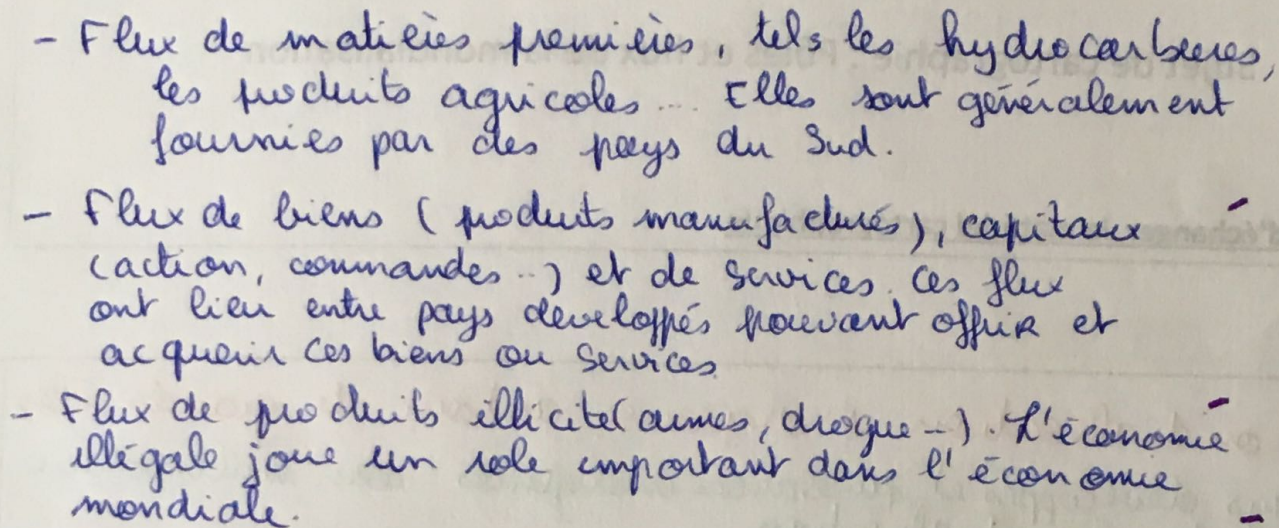 - Flux de matières premières, tels les hydrocarbures,
les produits agricoles... Elles sont généralement
fournies par des pays du Sud.
- Flux de biens (produits manufacturés), capitaux
(action, commandes...) et de services. Ces flux
ont lieu entre pays développés pouvant offrir et
acquerir ces biens ou services.
- Flux de produits illicite (armes, drogue...). L'économie
illégale joue un role important dans l'économie
mondiale.